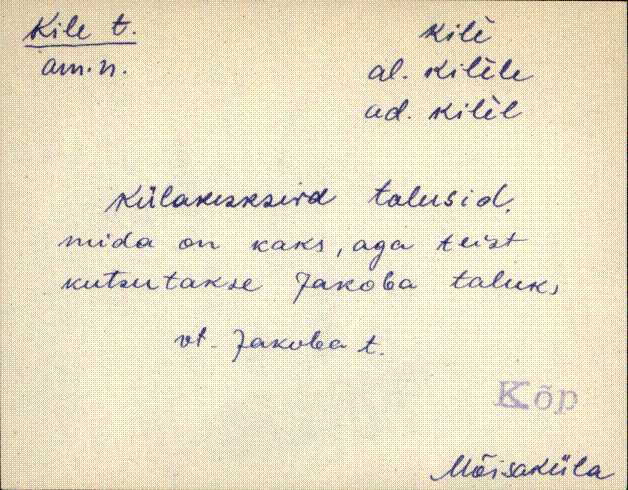 Kile t.
am.n.
kilè
al. kilèle
ad. kilèl
Külakeskseid talusid,
mida on kaks, aga teist
kutsutakse Jakoba taluks,
vt. Jakoba t.
Kõp
Mõisaküla